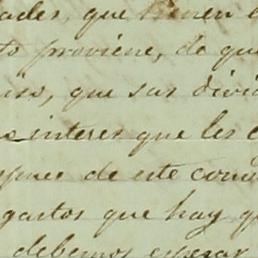 ades, que tienen
to proviene, de que
que sus divi
interes que les
spues de este con
gastos que hay q
debemos esperar